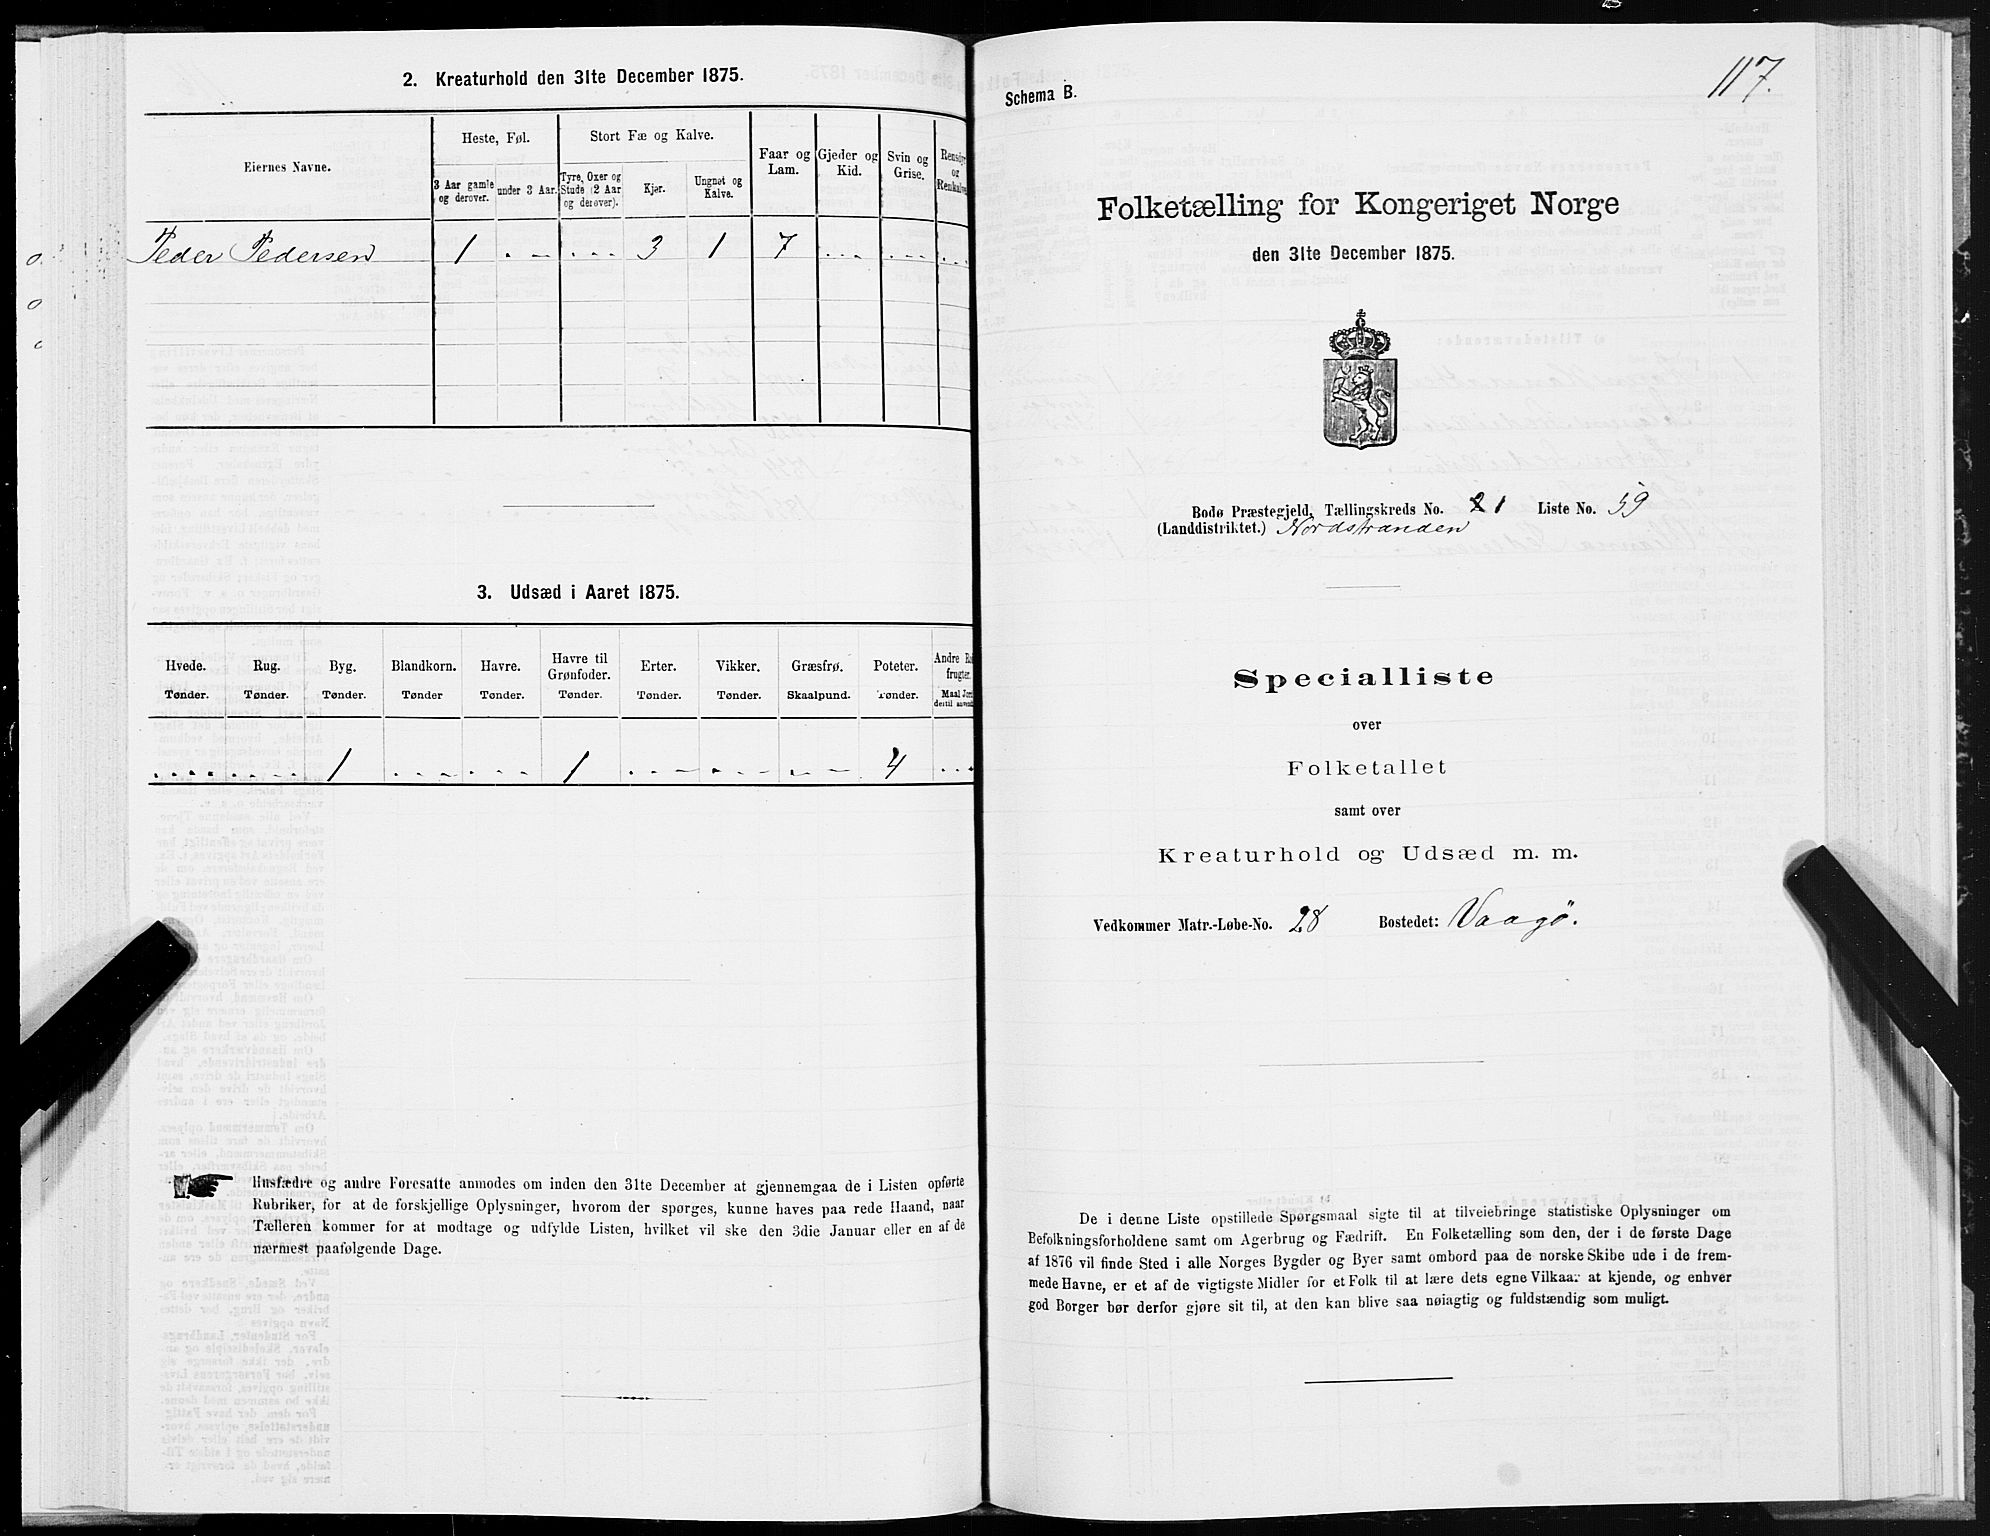 2. Kreaturhold den 31te December 1875.
Eiernes Navne.
Heste, Føl.
Stort Fæ og Kalve.
Faar og Lam.
Gjeder og Kid.
Svin og Grise.
Rensdyr og Renkalve
3 Aar gamle og derover.
under 3 Aar.
Tyre, Oxer og Stude (2 Aar og derover).
Kjør.
Ungnøt og Kalve.
Peder Pedersen 1 3 1 7
3. Udsæd i Aaret 1875.
Hvede. Rug. Byg. Blandkorn. Havre. Havre til Grønfoder. Erter. Vikker. Græsfrø. Poteter. Andre frugter.
Tønder. Tønder. Tønder. Tønder Tønder. Tønder. Tønder. Tønder. Skaalpund. Tønder. Maal
1 1 4
Husfædre og andre Foresatte anmodes om inden den 31te December at gjennemgaa de i Listen opførte
Rubriker, for at de forskjellige Oplysninger, hvorom der spørges, kunne haves paa rede Haand, naar
Tælleren kommer for at modtage og udfylde Listen, hvilket vil ske den 3die Januar eller en af de
nærmest paafølgende Dage.
117.
Schema B.
Folketælling for Kongeriget Norge
den 31te December 1875.
Bodø Præstegjeld, Tællingskreds No. 1 Liste No. 59
(Landdistriktet.) Nordstranden
Specialliste
over
Folketallet
samt over
Kreaturhold og Udsæd m. m.
Vedkommer Matr.-Løbe-No. 28 Bostedet: Vaagö.
De i denne Liste opstillede Spørgsmaal sigte til at tilveiebringe statistiske Oplysninger om
Befolkningsforholdene samt om Agerbrug og Fædrift. En Folketælling som den, der i de første Dage
af 1876 vil finde Sted i alle Norges Bygder og Byer samt ombord paa de norske Skibe ude i de frem-
mede Havne, er et af de vigtigste Midler for et Folk til at lære dets egne Vilkaar at kjende, og enhver
god Borger bør derfor gjøre sit til, at den kan blive saa nøiagtig og fuldstændig som muligt.